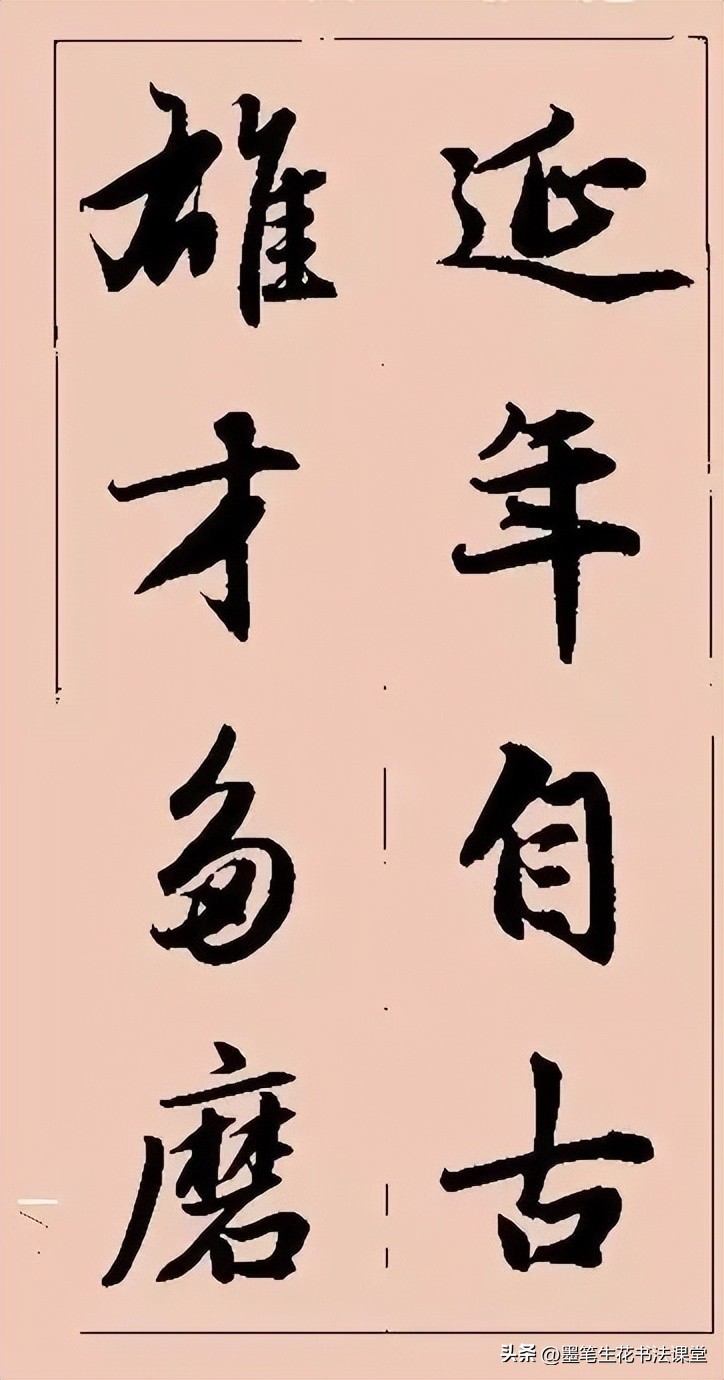 延年自古
雄才多磨
头条 @墨笔生花书法课堂